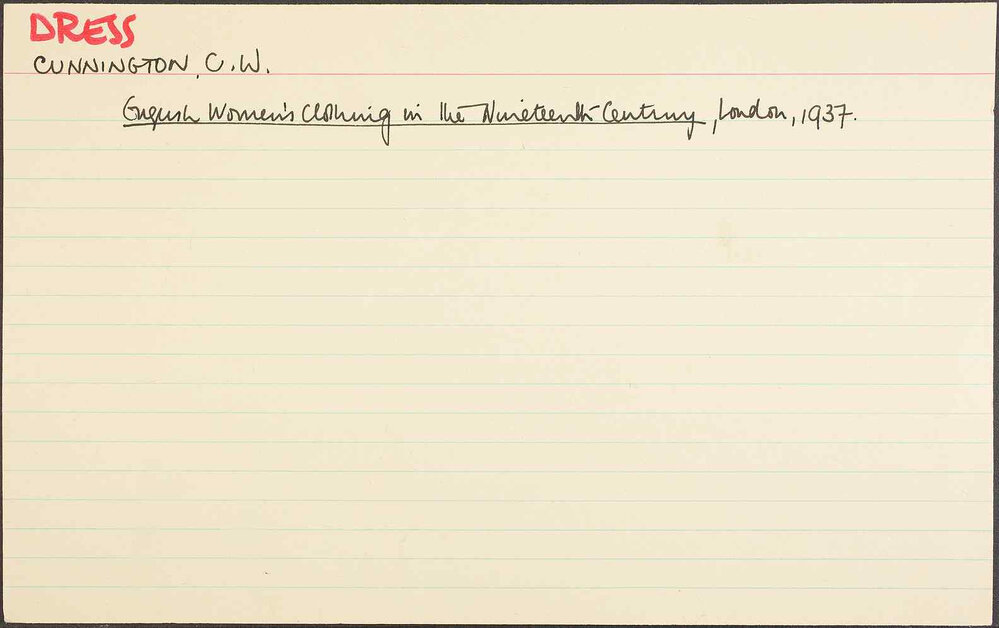 DRESS
CUNNINGTON, C.W.
English Women's Clothing in the Nineteenth Century, London, 1937.